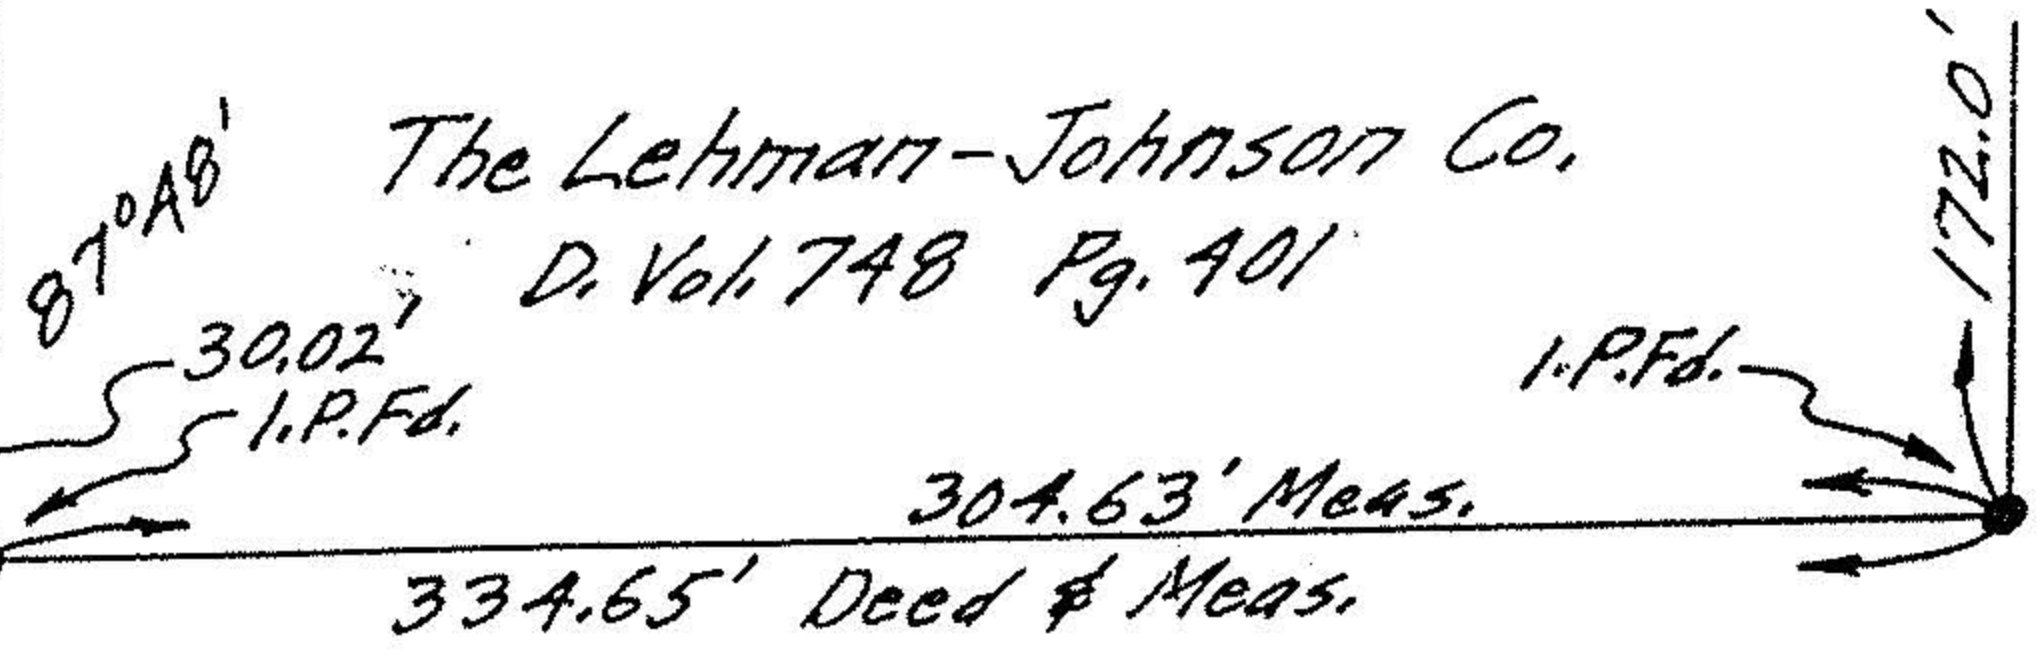 The Lehman-Johnson Co.
D. Vol. 748 Pg. 401
172.0'
87°48'
30.02'
I.P.Fd.
I.P.Fd.
304.63' Meas.
334.65' Deed & Meas.